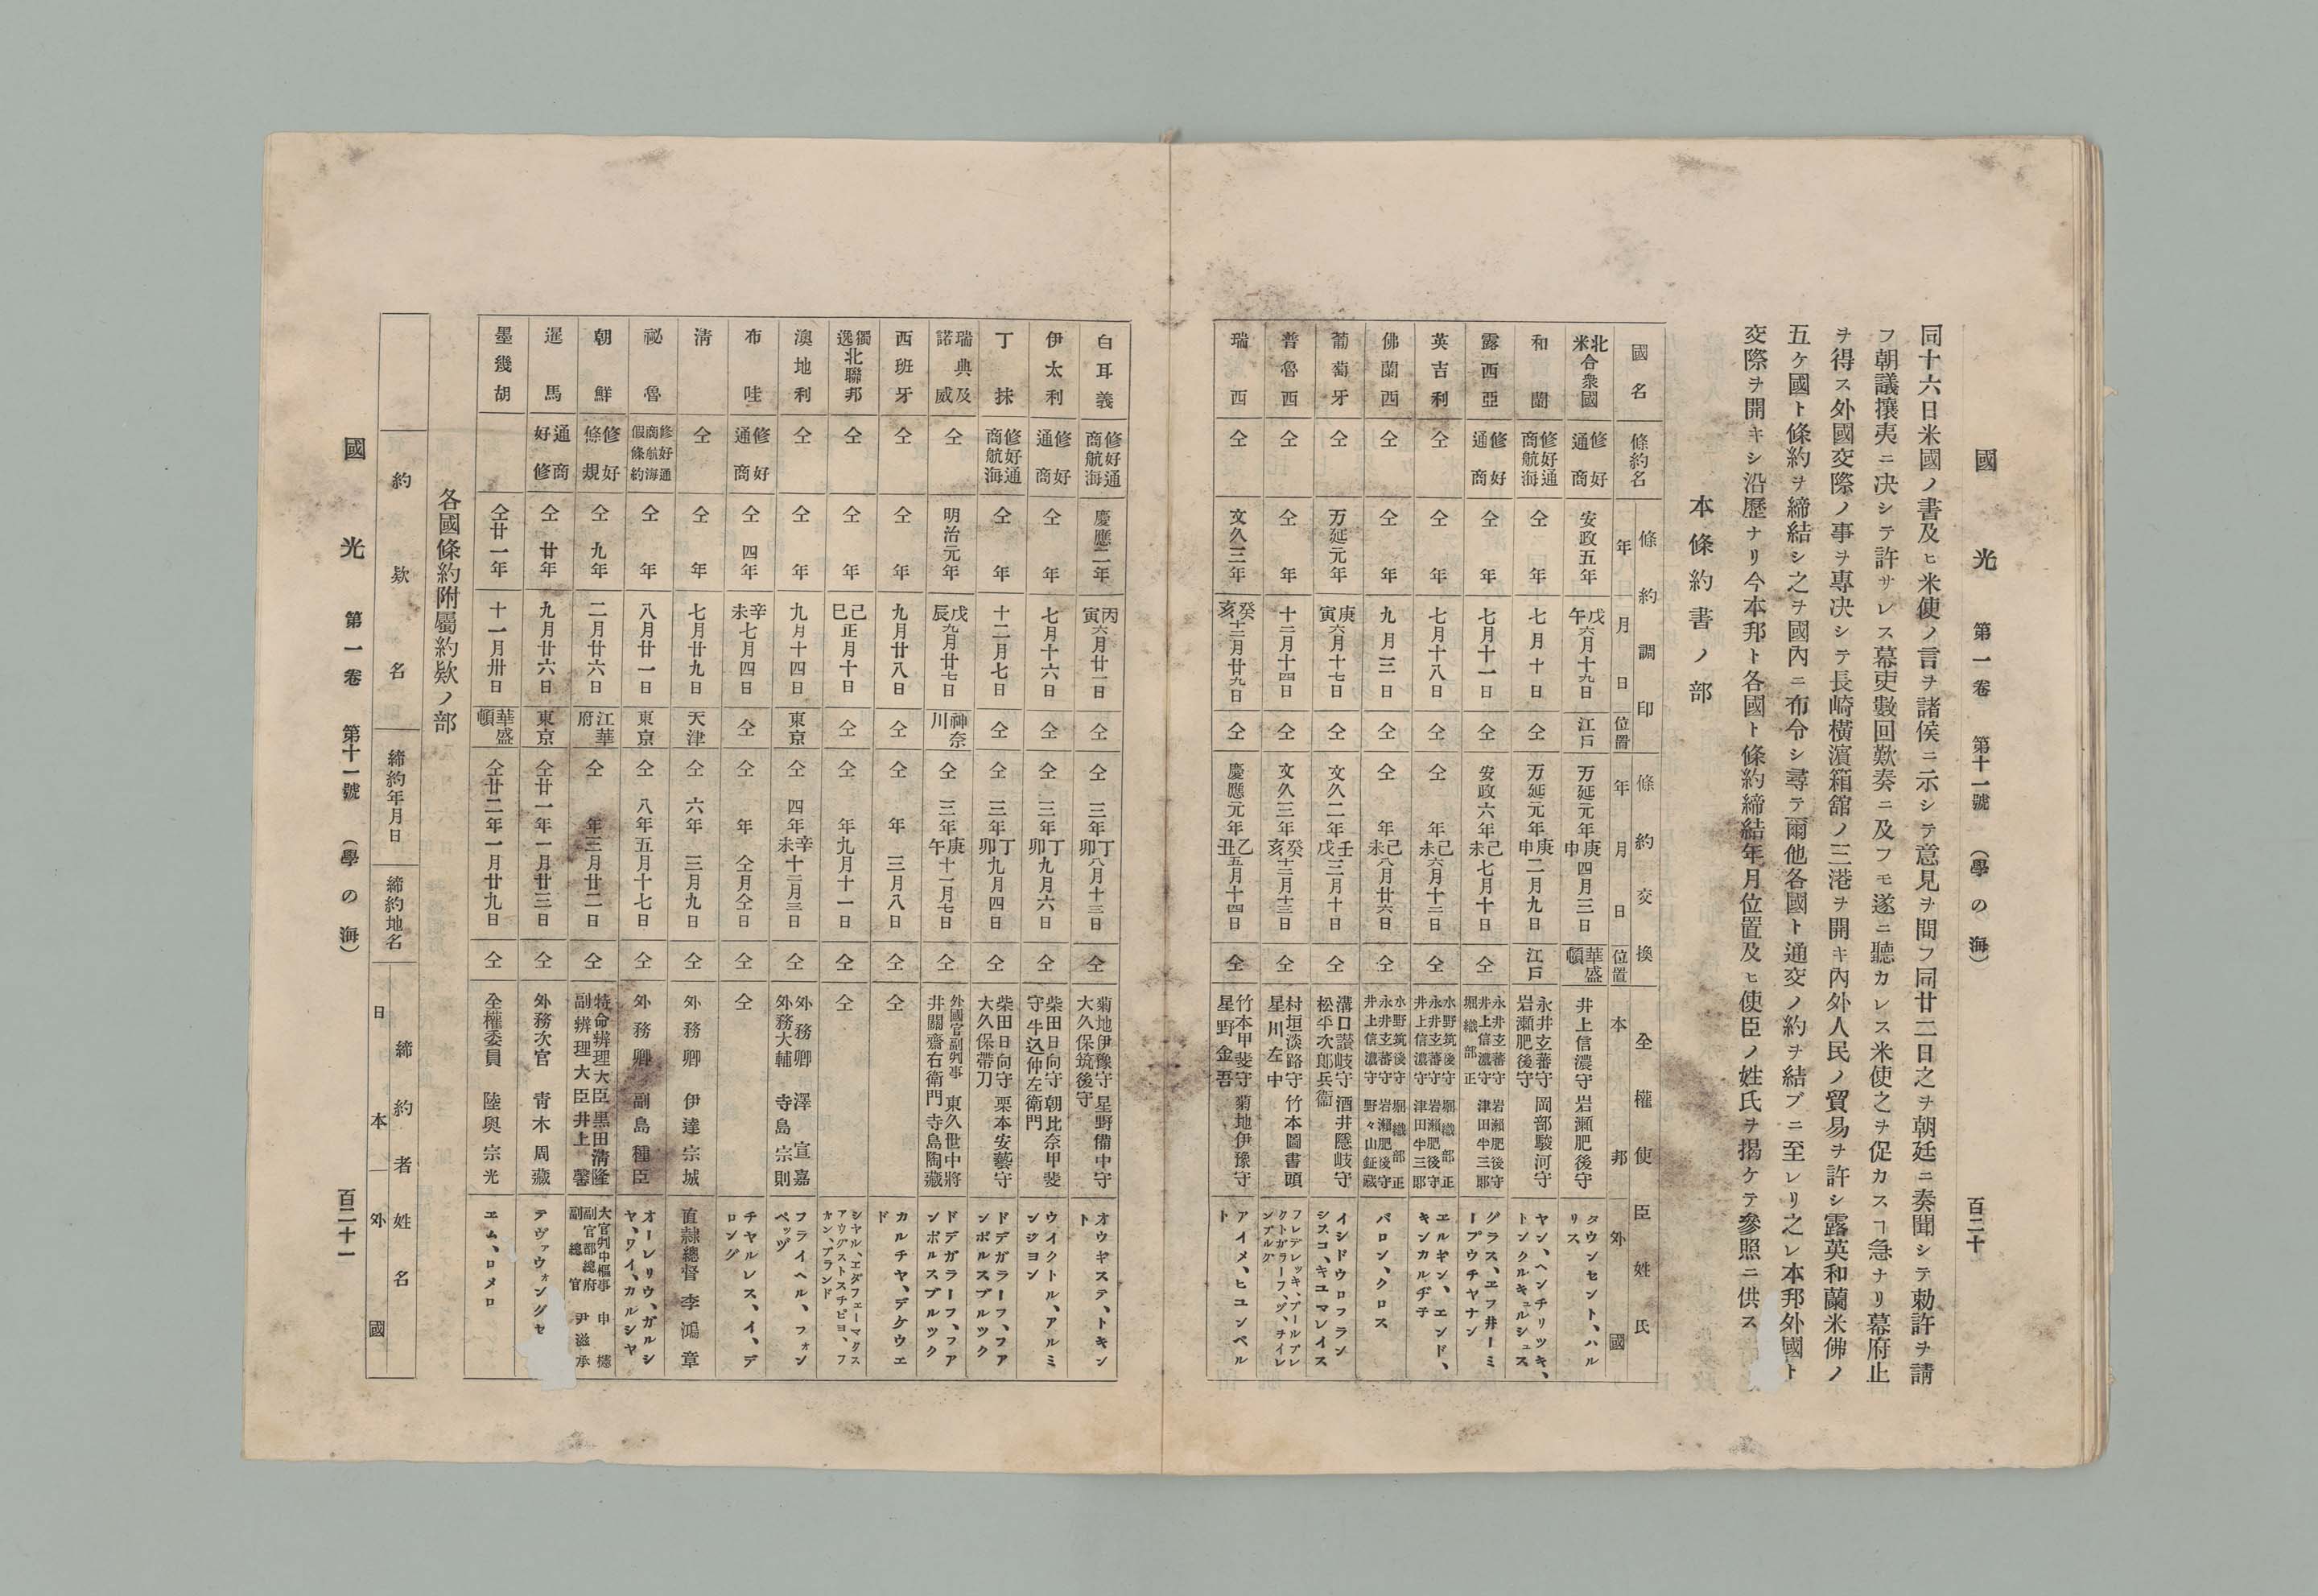 國光 第一卷 第十一號 (學の海) 百二十
同十六日米國ノ書及ヒ米使ノ言ヲ諸侯ニ示シテ意見ヲ問フ同廿二日之ヲ朝廷ニ奏聞シテ勅許ヲ請
フ朝議攘夷ニ决シテ許サレス幕吏數回歎奏ニ及フモ遂ニ聽カレス米使之ヲ促カスヿ急ナリ幕府止
ヲ得ス外國交際ノ事ヲ專决シテ長崎橫濱箱舘ノ三港ヲ開キ內外人民ノ貿易ヲ許シ露英和蘭米佛ノ
五ケ國ト條約ヲ締結シ之ヲ國內ニ布令シ尋テ爾他各國ト通交ノ約ヲ結ブニ至レリ之レ本邦外國ト
交際ヲ開キシ沿歷ナリ今本邦ト各國ト條約締結年月位置及ヒ使臣ノ姓氏ヲ揭ケテ參照ニ供ス
本條約書ノ部
國名 條約名 條約調印 年月日 位置 條約交換 年月日 位置 全權使臣姓氏 本邦 外國
北米合衆國 修好通商 安政五年 戊午六月十九日 江戶 万延元年庚申四月三日 華盛頓 井上信濃守 岩瀨肥後守 タウンセント、ハルリス
和蘭 修好通商航海 仝年 七月十日 仝 万延元年庚申二月九日 江戶 永井玄蕃守 岡部駿河守 岩瀨肥後守 ヤン、ヘンデリツキ、トンクルキュルシュス
露西亞 修好通商 仝年 七月十一日 仝 安政六年己未七月十日 仝 永井玄蕃守 岩瀨肥後守 井上信濃守 津田半三郎 堀織部正 グラス、エフ井ーミープウチヤナン
英吉利 仝 仝年 七月十八日 仝 仝年己未六月十二日 仝 水野筑後守 堀織部正 永井玄蕃守 岩瀨肥後守 井上信濃守 津田半三郎 エルギン、エンド、キンカルヂ子
佛蘭西 仝 仝年 九月三日 仝 仝年己未八月廿六日 仝 水野筑後守 堀織部正 永井玄蕃守 岩瀨肥後守 井上信濃守 野々山鉦藏 バロン、クロス
葡萄牙 仝 万延元年 庚寅六月十七日 仝 文久二年壬戊三月十日 仝 溝口讃岐守 酒井隱岐守 松平次郎兵衞 イシドウロフランシスコ、キユマレイス
普魯西 仝 仝年 十二月十四日 仝 文久三年癸亥十二月十三日 仝 村垣淡路守 竹本圖書頭 星川左中
瑞西 仝 文久三年 癸亥十二月廿九日 仝 慶應元年乙丑五月十四日 仝 竹本甲斐守 菊地伊豫守 星野金吾 アイメ、ヒユンベルト
白耳義 修好通商航海 慶應二年 丙寅六月廿一日 仝 仝三年丁卯八月十三日 仝 菊地伊豫守 星野備中守 大久保筑後守 オウギステ、トキント
伊太利 修好通商 仝年 七月十六日 仝 仝三年丁卯九月六日 仝 柴田日向守 朝比奈甲斐守 牛込仲左衛門 ウイクトル、アルミンジヨン
丁抹 修好通商航海 仝年 十二月七日 仝 仝三年丁卯九月四日 仝 柴田日向守 栗本安藝守 大久保帶刀 ドデガラーフ、フアンポルスブルツク
瑞典及諾威 仝 明治元年 戊辰九月廿七日 神奈川 仝三年庚午十一月七日 仝 外國官副判事 東久世中將 井關齋右衛門 寺島陶藏 ドデガラーフ、フアンポルスブルツク
西班牙 仝 仝年 九月廿八日 仝 仝年 三月八日 仝 仝 カルチヤ、デケウエド
獨逸北聯邦 仝 仝年 己巳正月十日 仝 仝年九月十一日 仝 仝
澳地利 仝 仝年 九月十四日 東京 仝四年辛未十二月三日 仝 外務卿 澤宣嘉 外務大輔 寺島宗則 フライヘル、フォンペッヅ
布哇 修好通商 仝四年 辛未七月四日 仝 仝年 仝月仝日 仝 仝 チヤルレス、イ、デロング
清 仝 仝年 七月廿九日 天津 仝六年 三月九日 仝 外務卿 伊達宗城 直隷總督 李鴻章
祕魯 修好通商航海假條約 仝年 八月廿一日 東京 仝八年五月十七日 仝 外務卿 副島種臣 オーレリウ、ガルシヤ、ワイ、カルシヤ
朝鮮 修好條規 仝九年 二月廿六日 江華府 仝年三月廿二日 仝 特命辨理大臣 黑田淸隆 副辨理大臣 井上馨 大官判中樞事 申櫶 副官都總府副總官 尹滋承
暹馬 通商好修 仝廿年 九月廿六日 東京 仝廿一年一月廿三日 仝 外務次官 青木周藏 テヴァウォングセ
墨幾胡 仝廿一年 十一月卅日 華盛頓 仝廿二年一月廿九日 仝 全權委員 陸奥宗光 エム、ロメロ
各國條約附屬約欵ノ部
約欵名 締約年月日 締約地名 締約者姓名 日本 外國
國光 第一卷 第十一號 (學の海) 百二十一